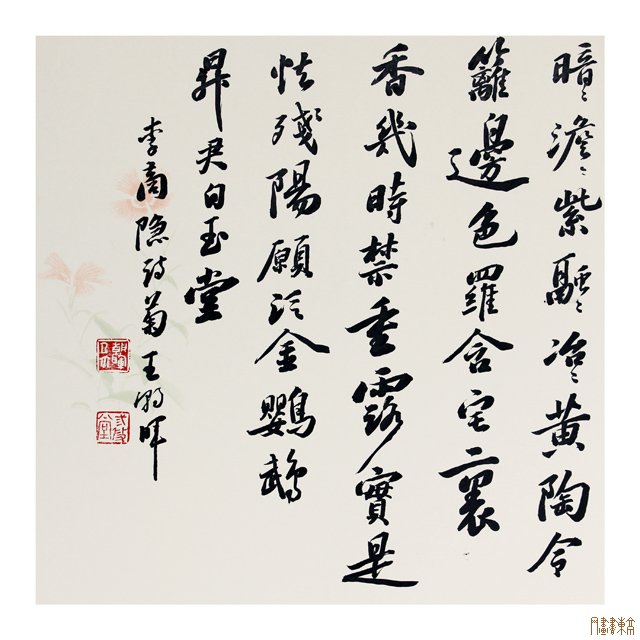 暗〻澹〻紫融〻冶〻黄陶令
籬邊色羅含宅裏
香幾時禁重露實是
怯殘陽願泛金鸚鵡
昇君白玉堂
李商隐诗菊 王朝晖